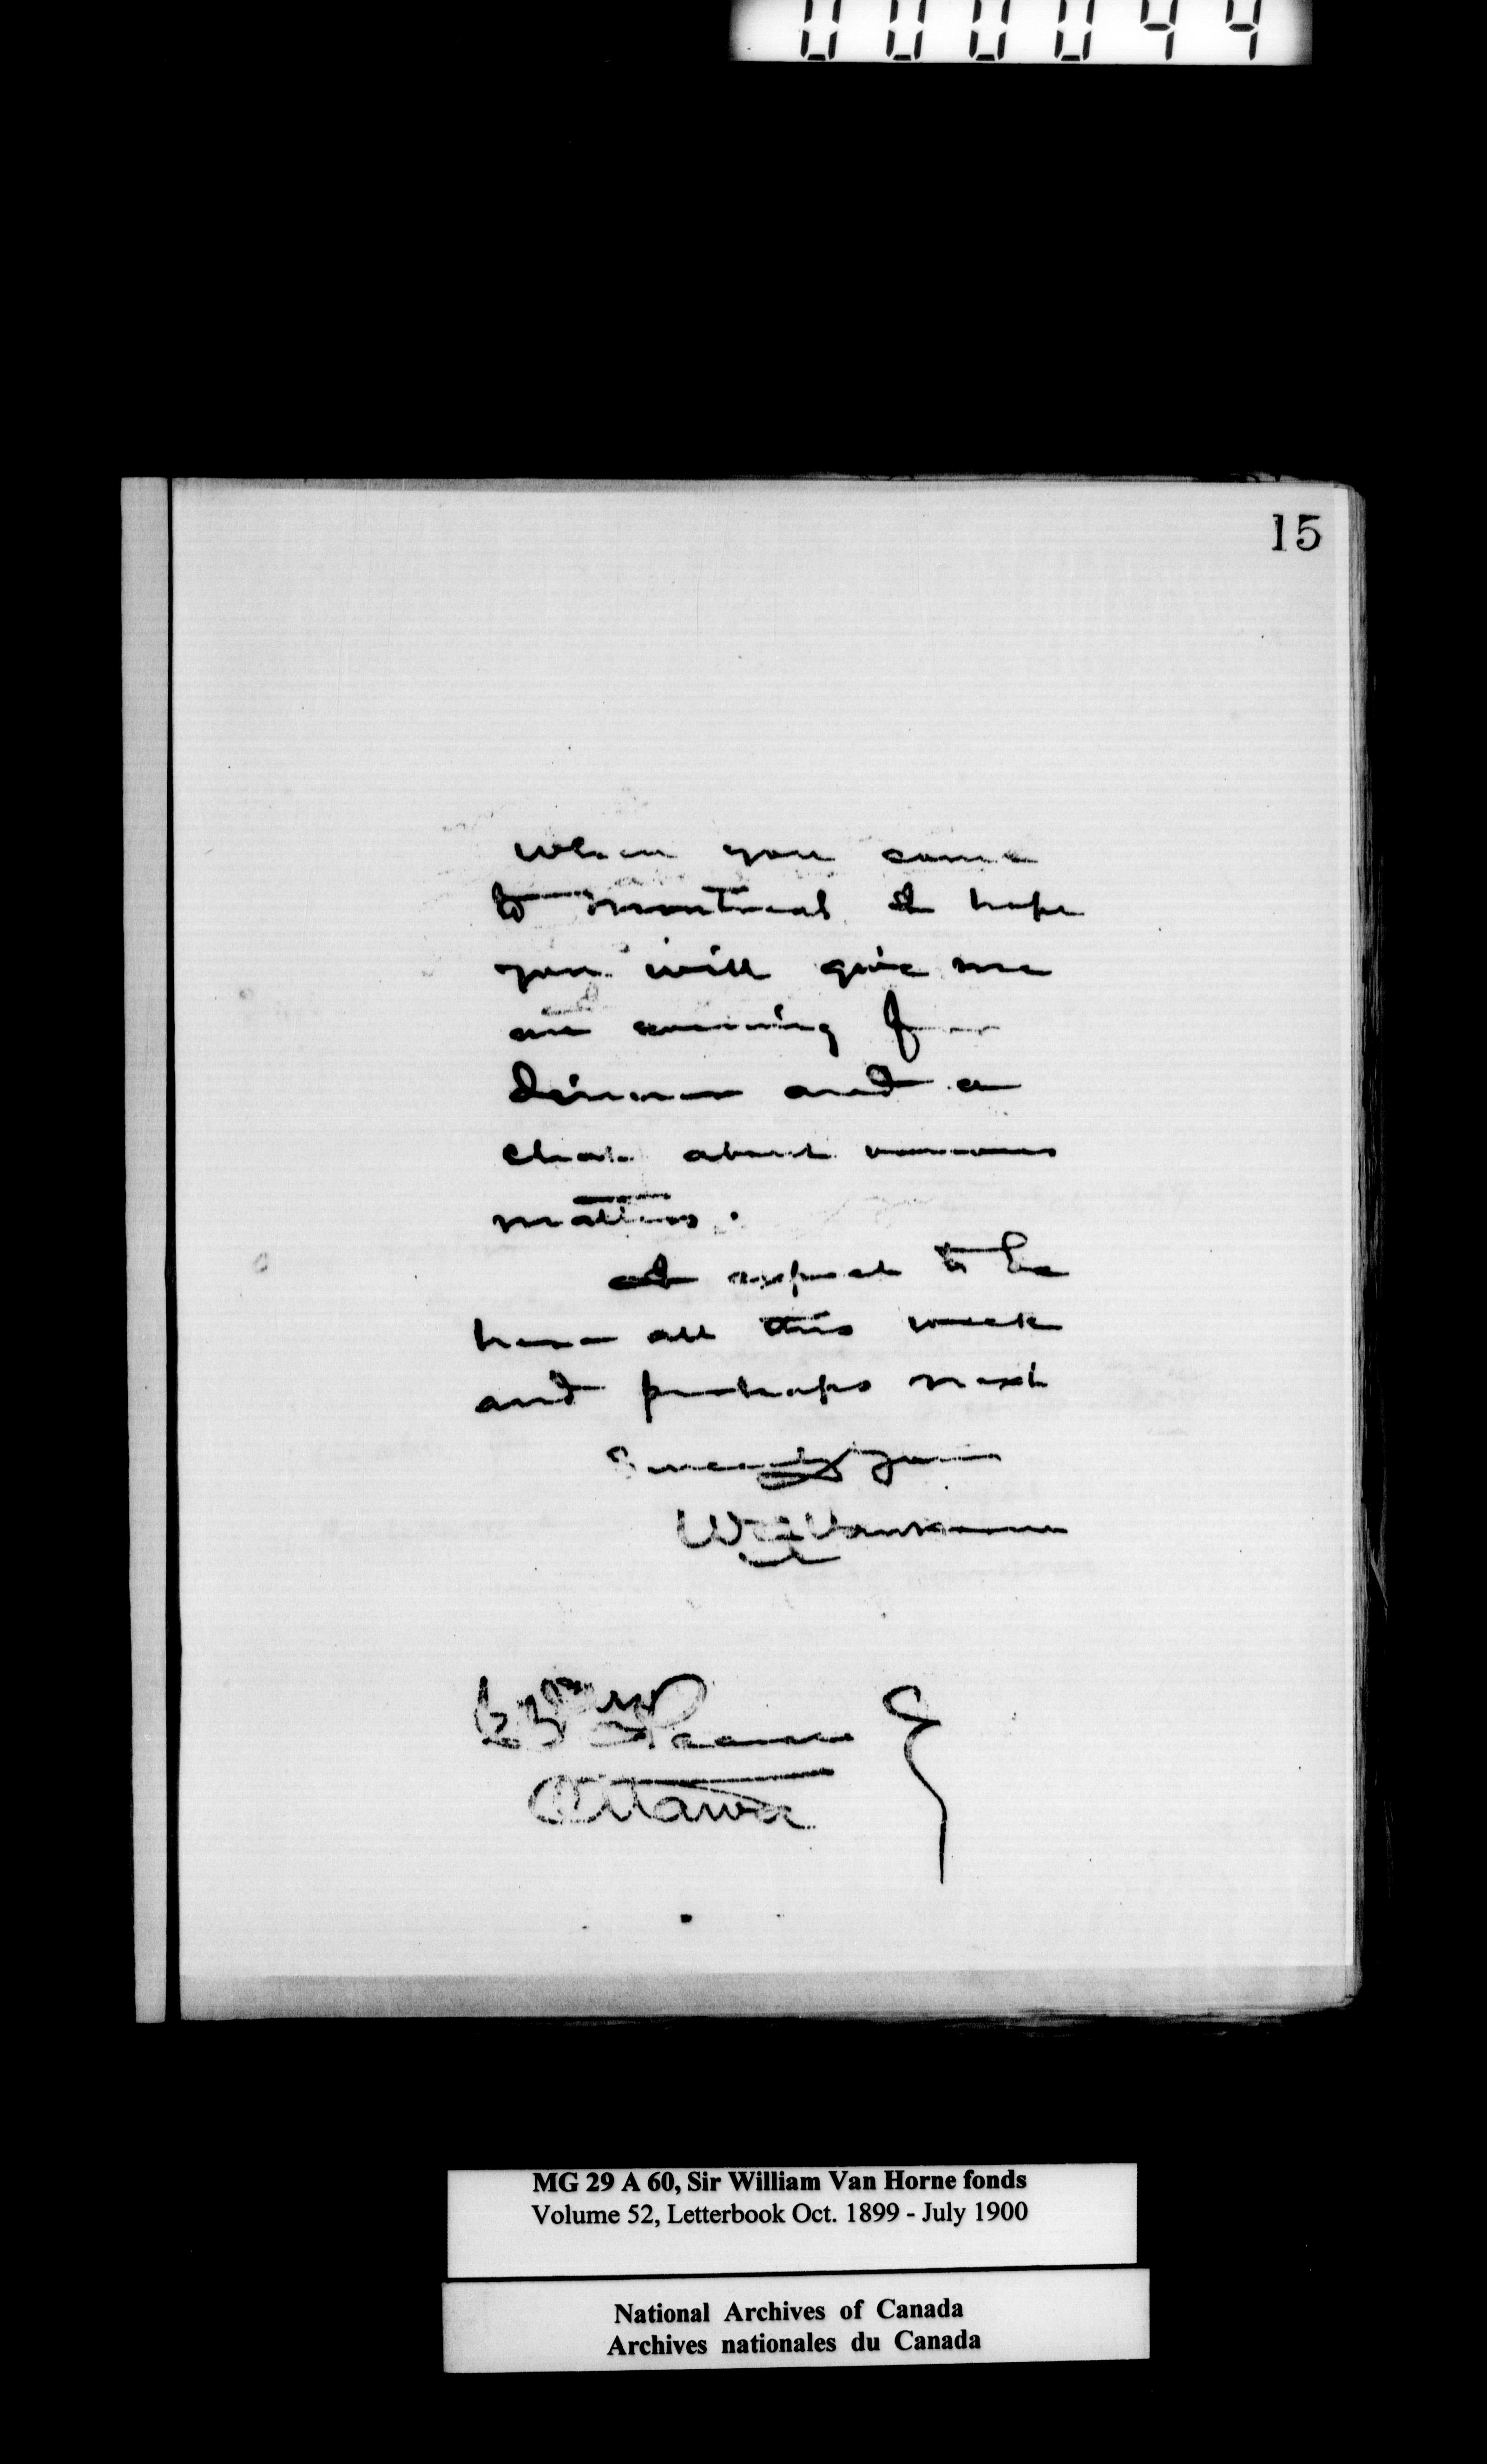 000044
15
When you come
to Montreal I hope
you will give me
an evening for
dinner and a
chat about various
matters.
I expect to be
here all this week
and perhaps next
Sincerely yours
W C Van Horne
Ottawa
MG 29 A 60, Sir William Van Horne fonds
Volume 52, Letterbook Oct. 1899 - July 1900
National Archives of Canada
Archives nationales du Canada